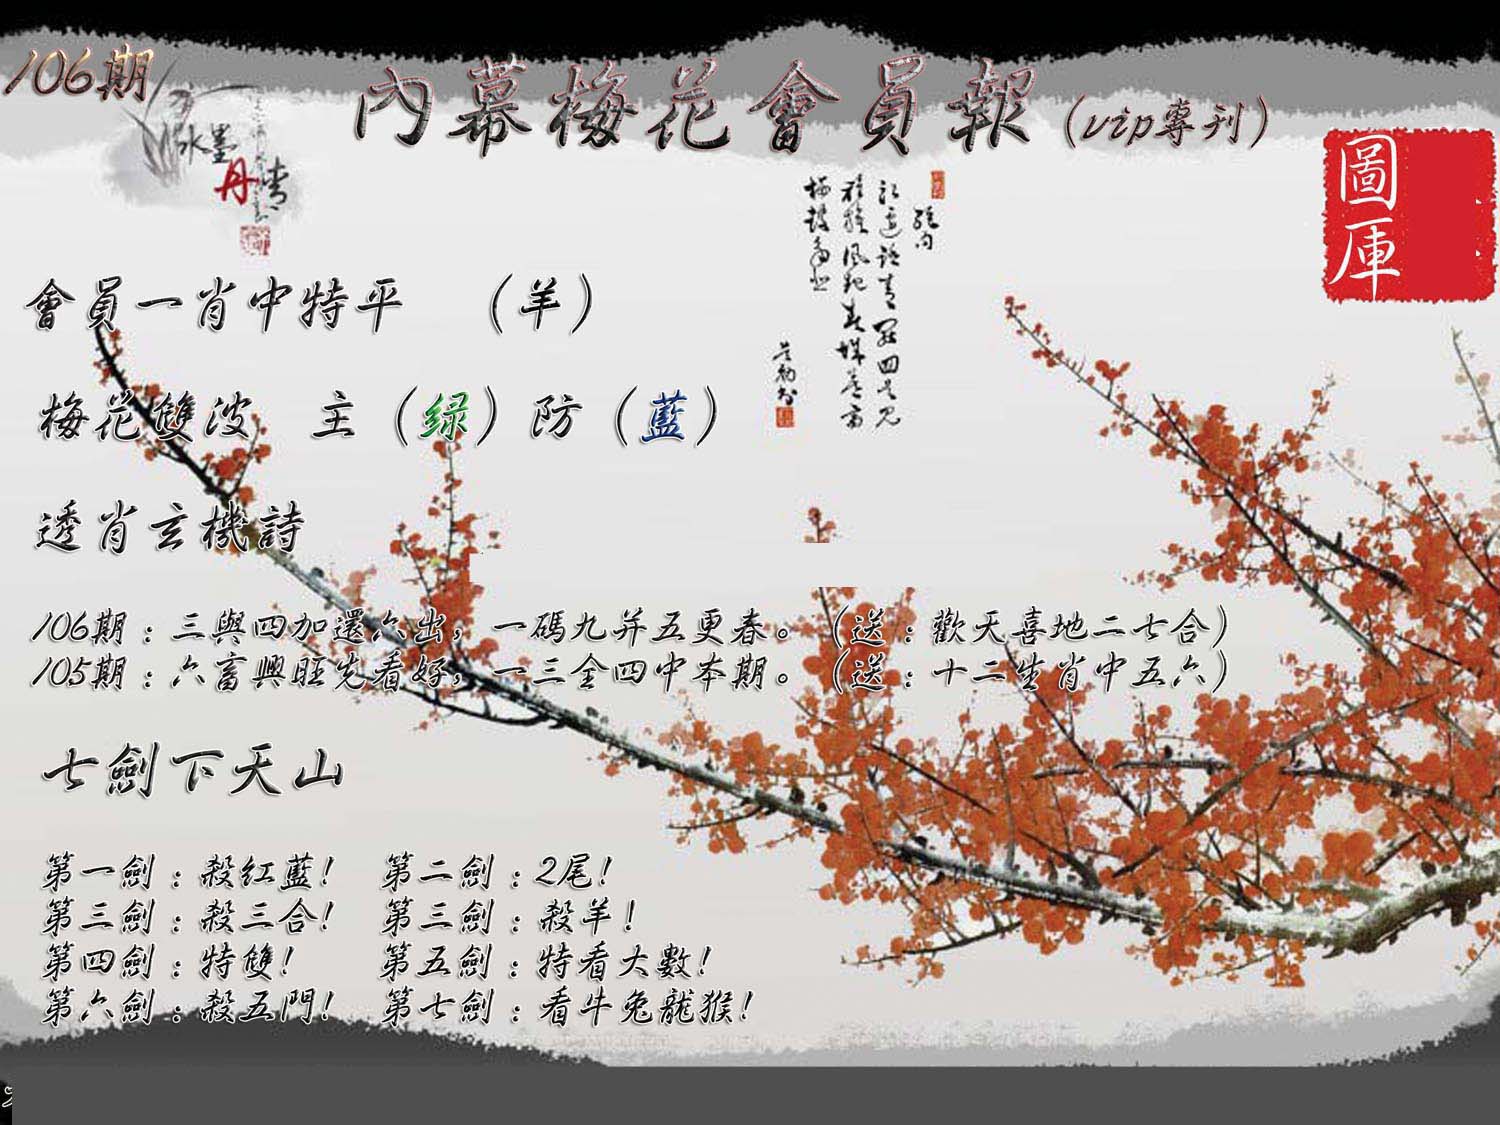 106期
內幕梅花會員報(vip專刊)
水墨
丹青
圖庫
會員一肖中特平 （羊）
梅花雙波 主（緑）防（藍）
透肖玄機詩
106期：三與四加還六出，一碼九并五更春。（送：歡天喜地二七合）
105期：六畜興旺先看好，一三全四中本期。（送：十二生肖中五六）
七劍下天山
第一劍：殺紅藍！ 第二劍：2尾！
第三劍：殺三合！ 第三劍：殺羊！
第四劍：特雙！ 第五劍：特看大數！
第六劍：殺五門！ 第七劍：看牛兔龍猴！